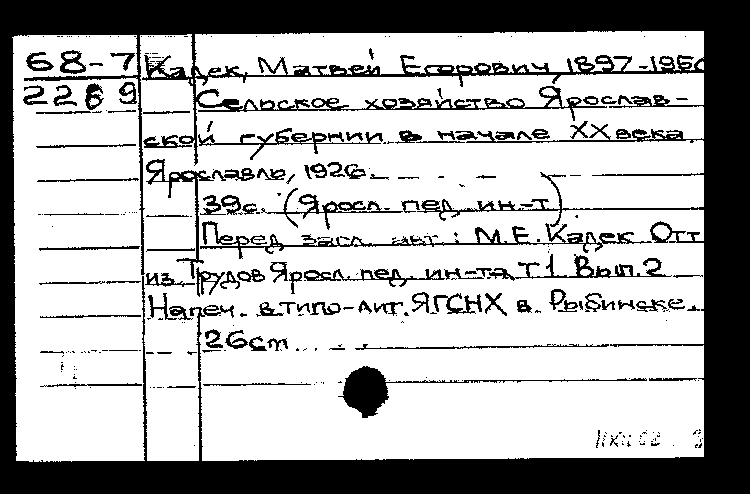 68-7 Кадек, Матвей Егорович, 1897-195
2289 Сельское хозяйство Ярослав-
ской губернии в начале XX века.
Ярославль, 1926.
39с. (Яросл. пед. ин-т)
Перед загл. авт.: М.Е. Кадек Отт
из Трудов Яросл. пед. ин-та, Т 1. Вып. 2
Напеч. в типо-лит. ЯГСНХ в Рыбинске.
26 cm